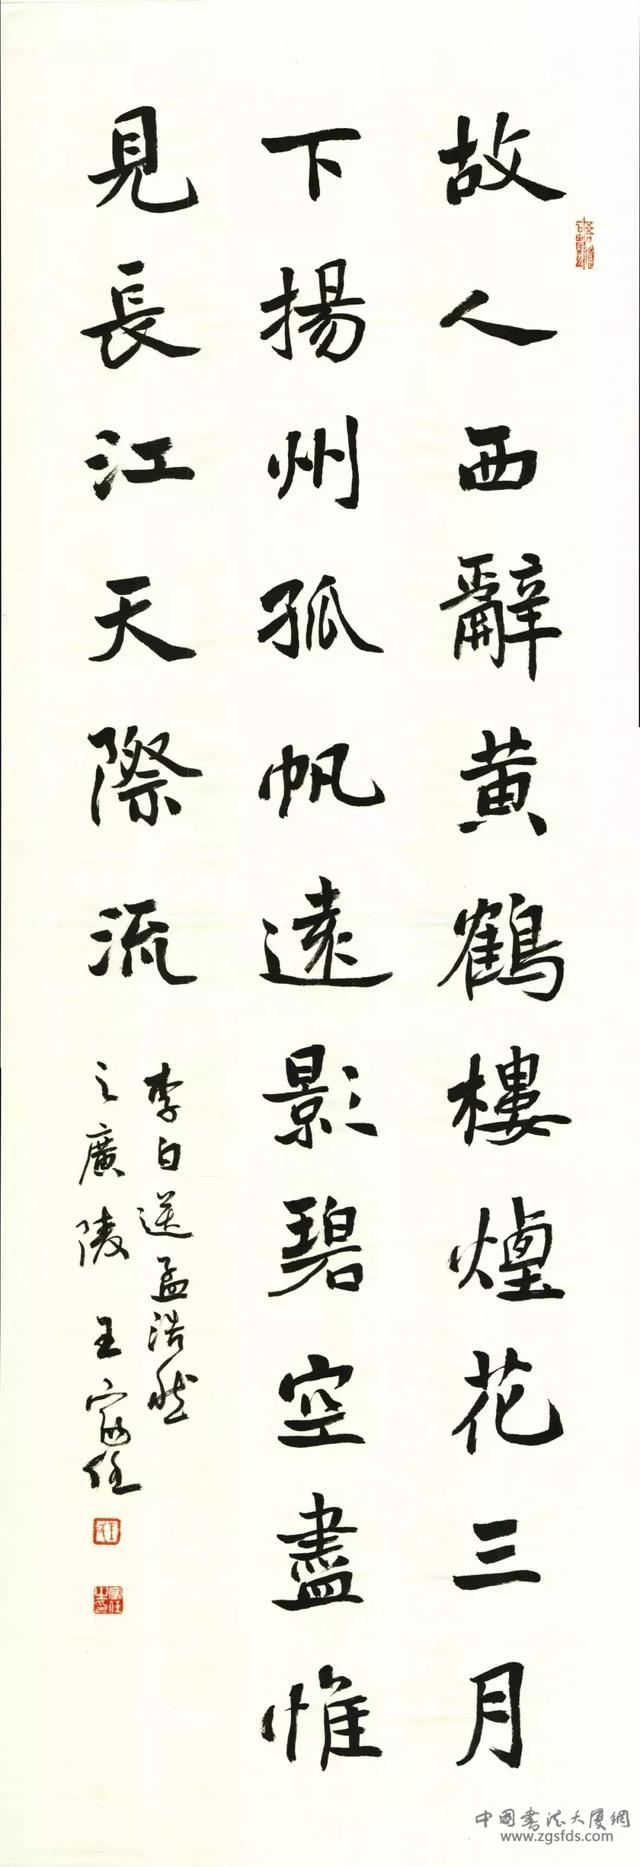 故人西辭黄鶴樓煙花三月
下揚州孤帆遠影碧空盡惟
見長江天際流
李白送孟浩然
之廣陵 王家任
中國書法大廈網
www.zgsfds.com